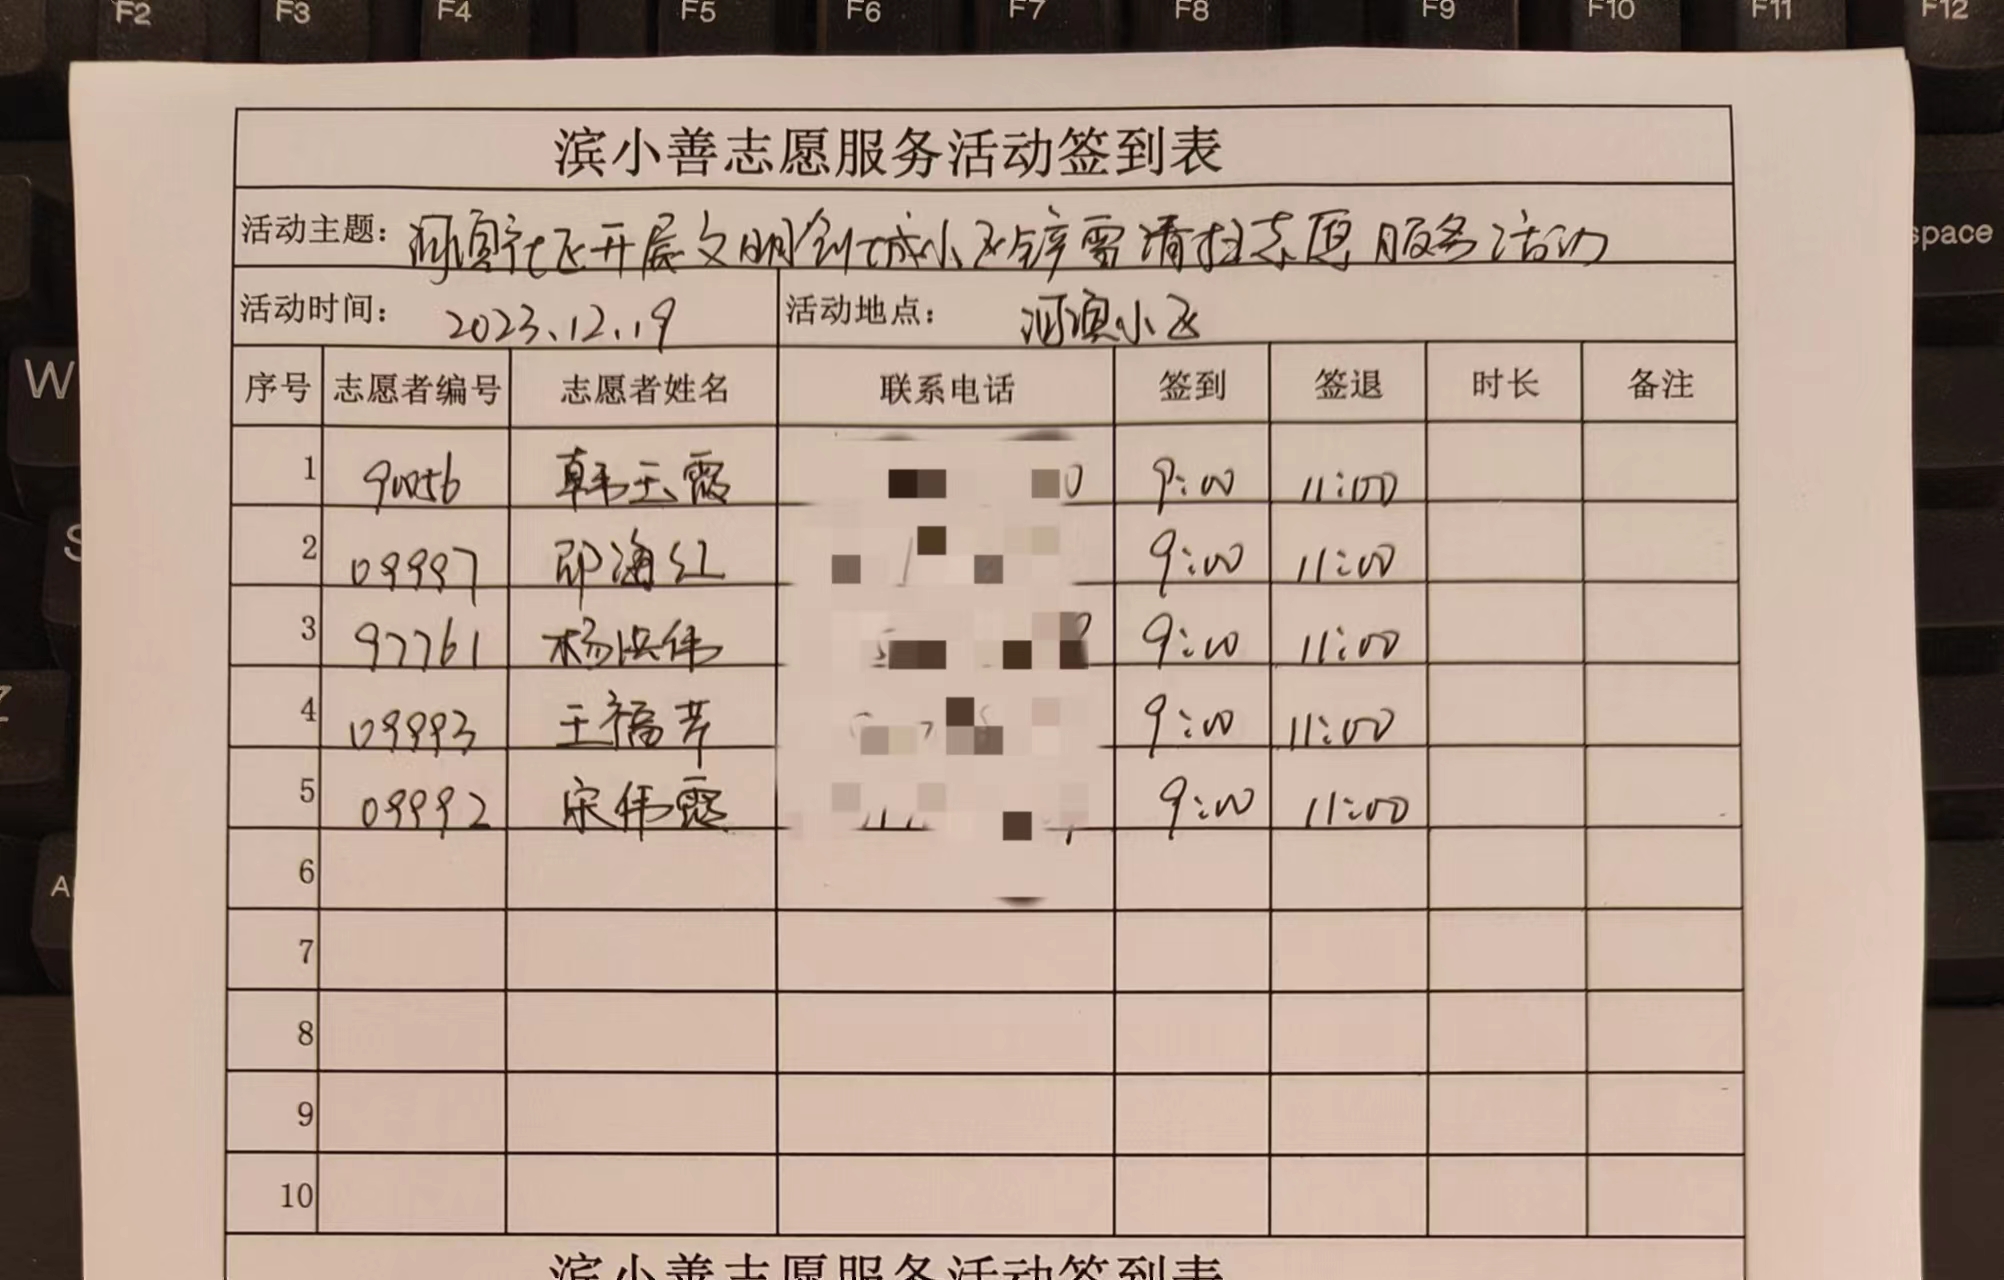 F2 F3 F4 F5 F6 F7 F8 F9 F10 F11 F12
滨小善志愿服务活动签到表
活动主题: 河滨社区开展文明创城小区铲雪清扫志愿服务活动
space
活动时间: 2023.12.19 活动地点: 河滨小区
W
序号 志愿者编号 志愿者姓名 联系电话 签到 签退 时长 备注
1 90056 韩玉霞 0 9:00 11:00
S
2 09997 邱海红 9:00 11:00
3 97761 杨洪伟 9:00 11:00
Z
4 09993 王福芹 9:00 11:00
5 09992 宋伟霞 9:00 11:00
6
7
8
9
10
滨小善志愿服务活动签到表